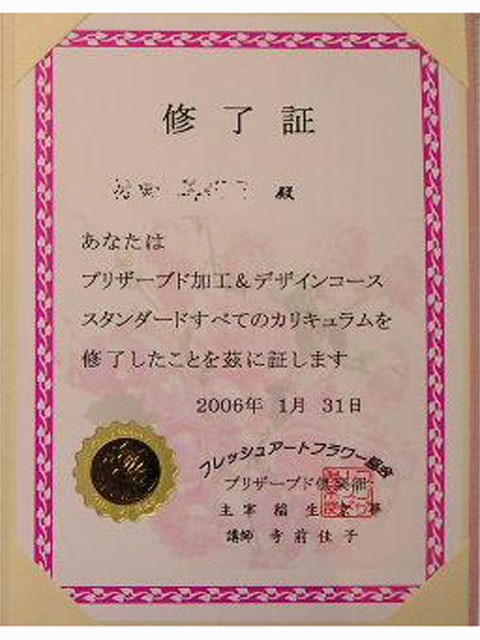 修了証
殿
あなたは
プリザーブド加工＆デザインコース
スタンダードすべてのカリキュラムを
修了したことを茲に証します
2006年 1月 31日
フレッシュアートフラワー協会
プリザーブド倶楽部
主宰 稲生
講師 寺前佳子